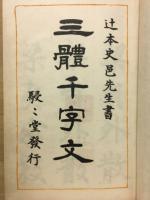 辻本史邑先生書
三體千字文
駸〻堂發行